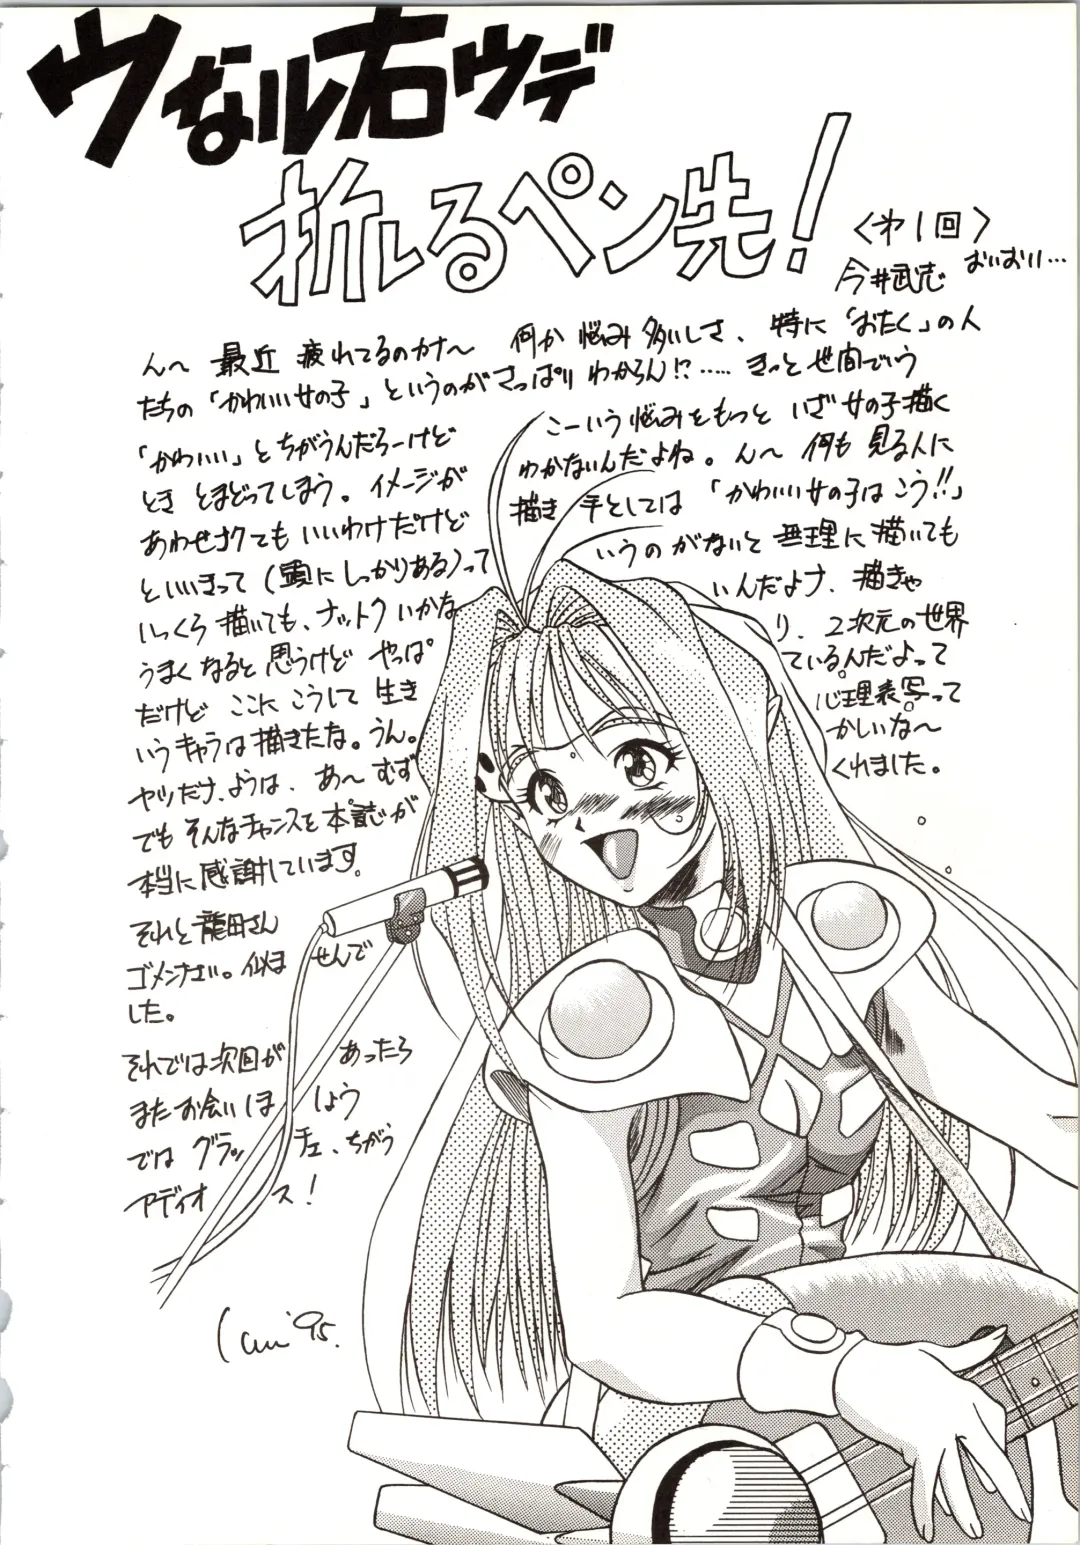 ウなル右ウデ
折しるペン先!
〈第1回〉
今井武志 おいおい…
ん〜 最近 疲れてるのカナ〜 何か 悩み 多いしさ、特に「おたく」の人
たちの「かわいい女の子」というのがさっぱり わからん!?…… きっと 世間でいう
「かわいい」とちがうんだろーけど こーいう悩みをもっと いざ女の子描く
とき とまどってしまう。イメージが わかないんだよね。ん〜 何も 見る人に
あわせナクても いいわけだけど 描き 手としては 「かわいい女の子は こう!!」
といいきって(頭にしっかりある)って いうのがないと 無理に描いても
いっくら 描いても、ナットク いかな いんだよナ、描きゃ
うまくなると思うけど やっぱ り、2次元の世界
だけど ここに こうして 生き ているんだよって
いうキャラは描きたな。うん。 心理表写って
ヤツだナ、ようは、あ〜 むず かしいな〜
でも そんなチャンスを 本誌が くれました。
本当に感謝しています。
それと龍田さん
ゴメンナさい。似ま せんで
した。
それでは次回が あったら
またお会いしま しょう
では グラッ チェ、ちがう
アディオ ス!
'95.